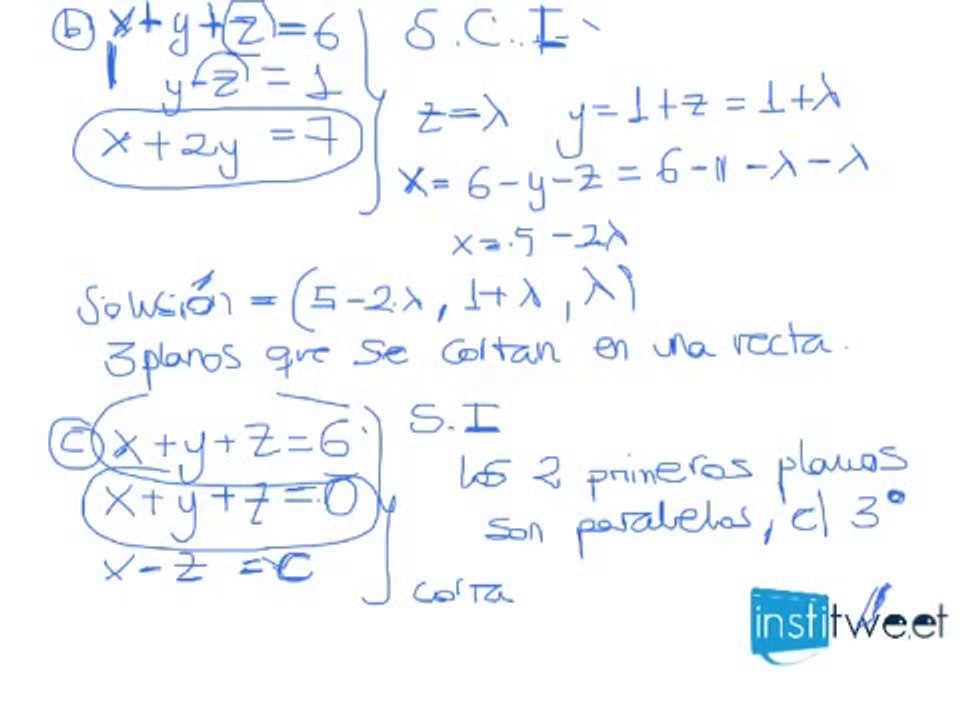 b) x+y+z=6 S.C.I.
y-z=1
z=λ y=1+z=1+λ
x+2y=7
x=6-y-z=6-1-λ-λ
x=5-2λ
Solución = (5-2λ, 1+λ, λ)
3 planos que se cortan en una recta.
c) x+y+z=6 S.I
x+y+z=0 los 2 primeros planos
son paralelos, el 3º
x-z=0
corta
institweet